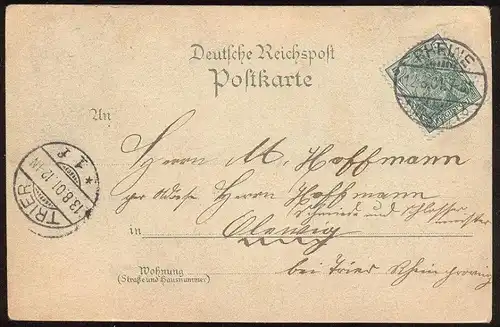 Deutsche Reichspost
Postkarte
RHEINE
An
Herrn M. Hoffmann
per Adresse Herrn Hoffmann
Schmiede und Schlosser
meister
in Olewig
bei Trier Rheinprovinz
Wohnung
(Straße und Hausnummer)
TRIER
13.8.01. 12-1N
* 1 f *